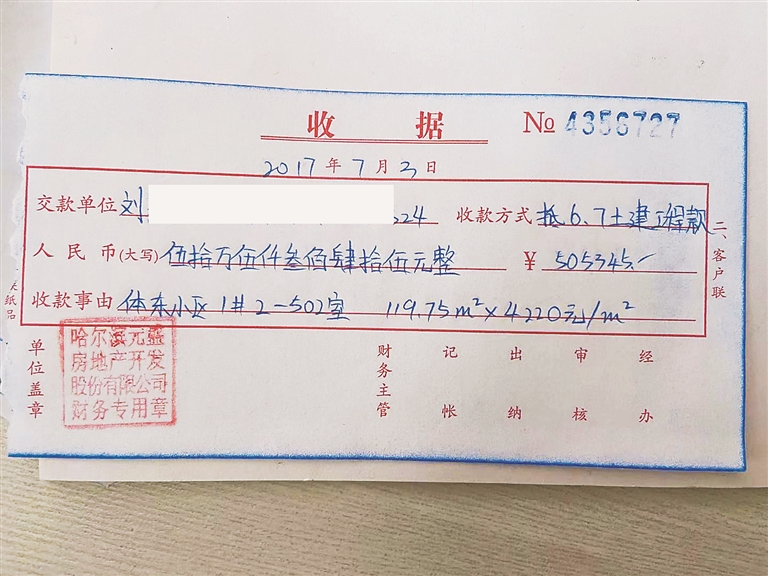 收 据 № 4356727
2017 年 7 月 3 日
交款单位 刘 224 收款方式 抵6、7土建工程款
人民币(大写) 伍拾万伍仟叁佰肆拾伍元整 ¥ 505345.-
收款事由 体东小区1#2-502室 119.75m²×4220元/m²
二、客户联
单位盖章
哈尔滨元盛
房地产开发
股份有限公司
财务专用章
财务主管 记帐 出纳 审核 经办
纸品